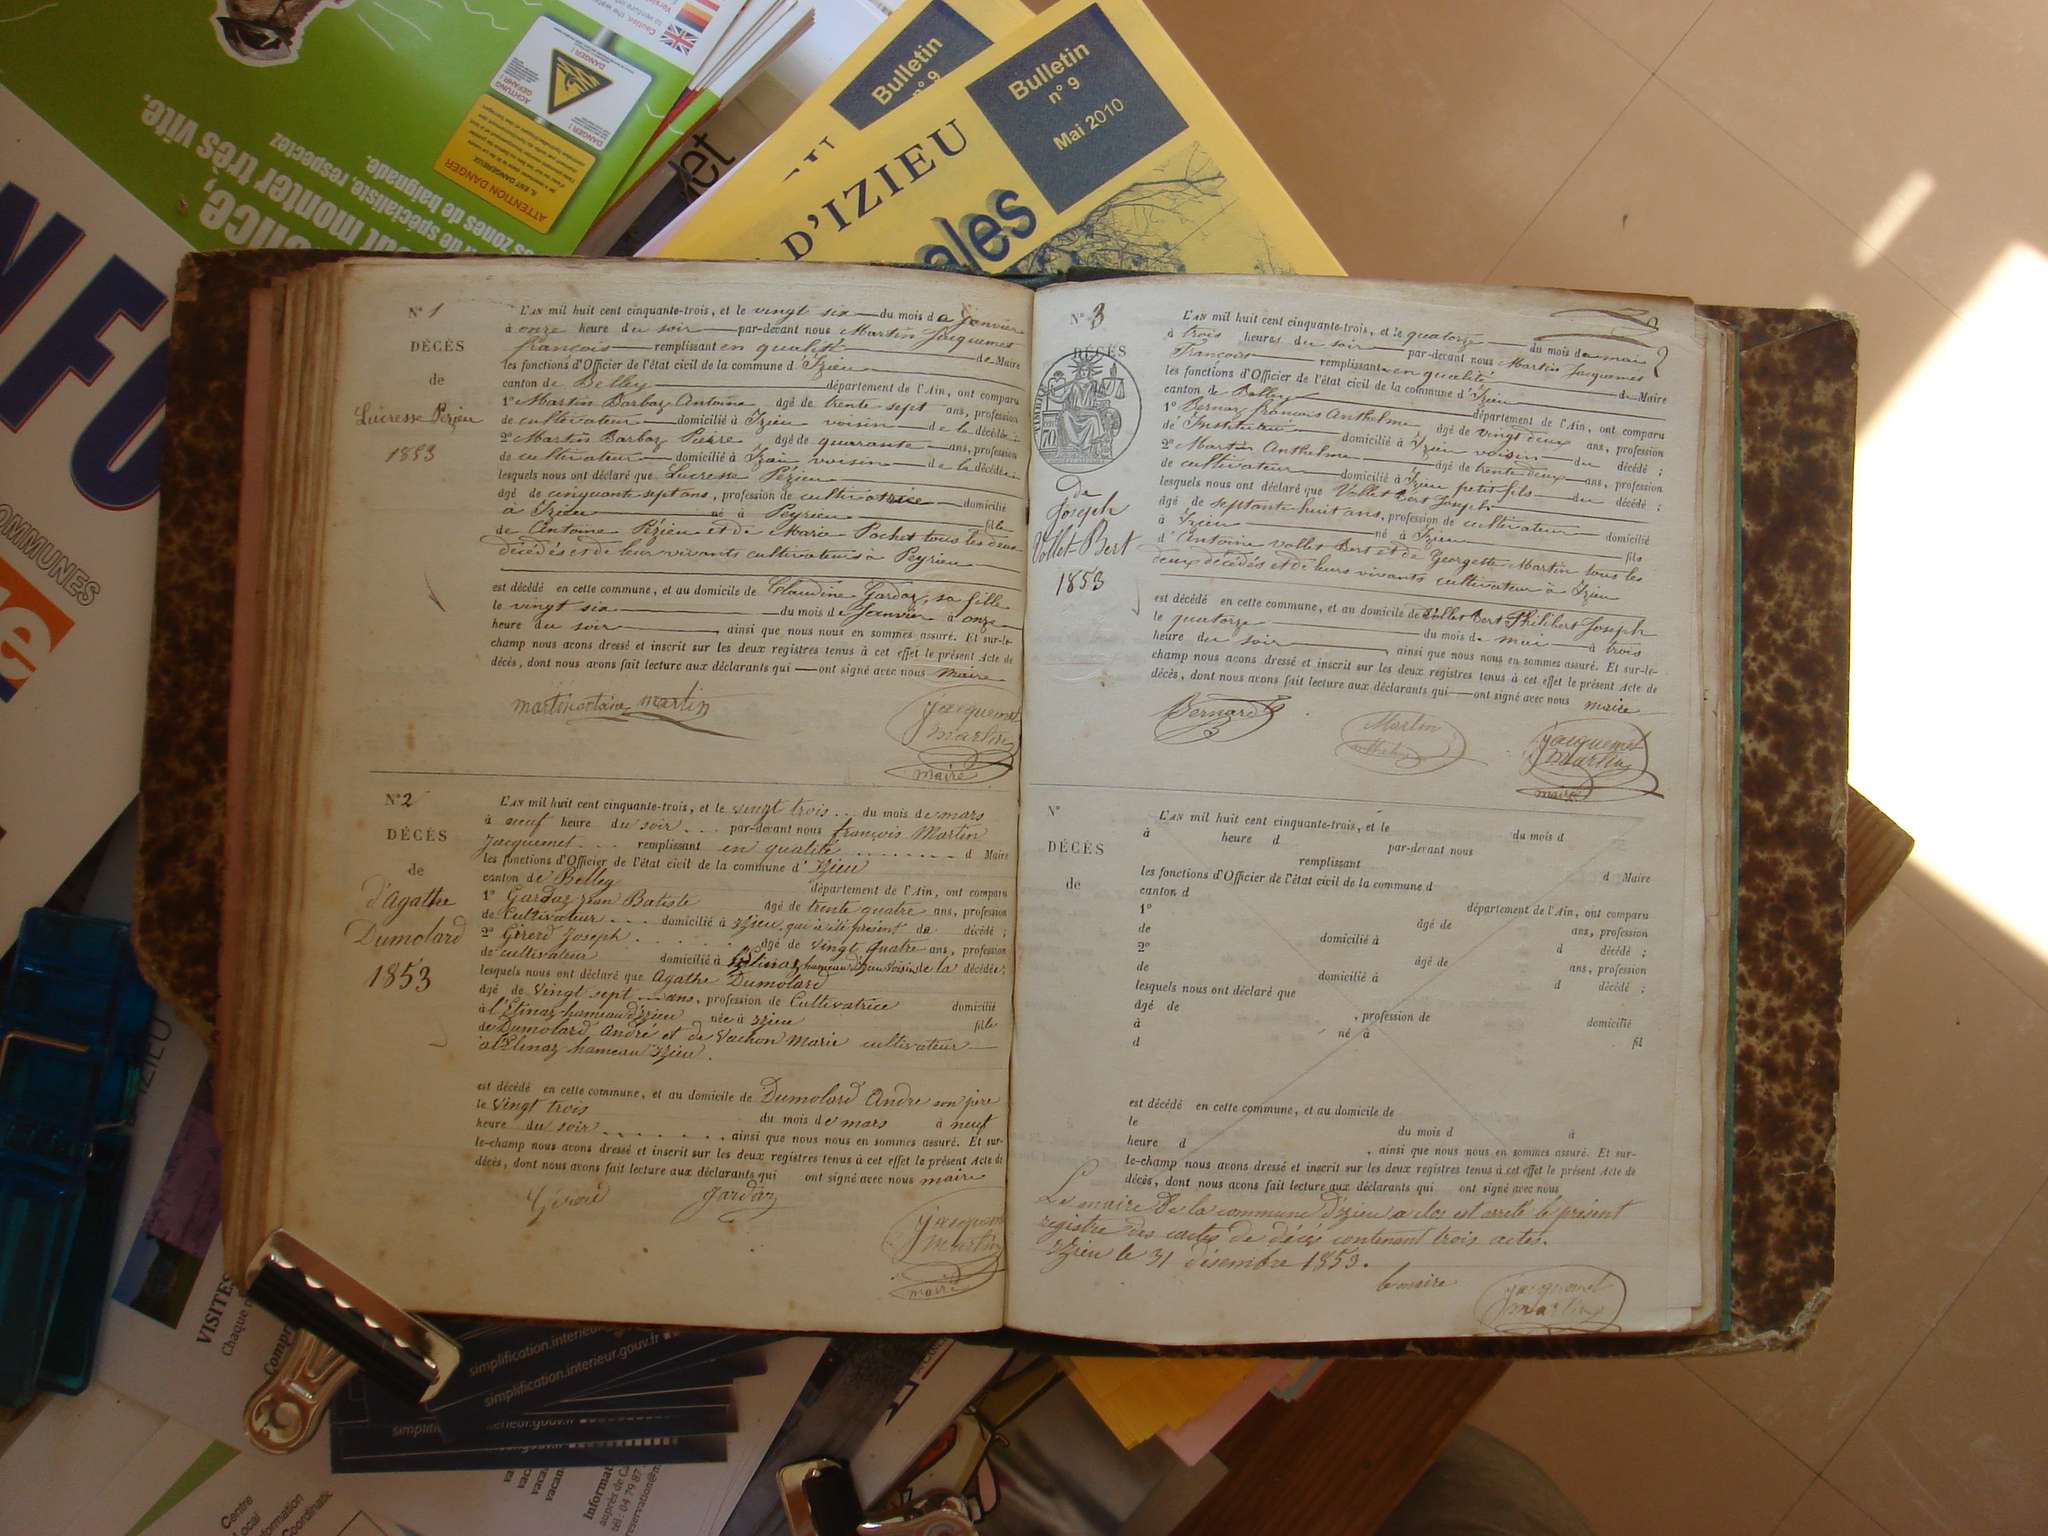 Bulletin
n° 9
Bulletin
n° 9
Mai 2010
D'IZIEU
ales
très vite.
ut monter
de spécialiste, respectez
zones de baignade.
ATTENTION DANGER
DANGER !
ACHTUNG
GEFAHR !
NFO
OMMUNES
N° 1
DÉCÈS
de
Lucresse Pézieu
1853
L'AN mil huit cent cinquante-trois, et le vingt six du mois de Janvier
à onze heure du soir par-devant nous Martin Jacquemet
françois remplissant en qualité de Maire
les fonctions d'Officier de l'état civil de la commune d'Izieu
canton de Belley département de l'Ain, ont comparu
1° Martin Barbaz Antoine âgé de trente sept ans, profession
de cultivateur domicilié à Izieu voisin de la décédée
2° Martin Barbaz Pierre âgé de quarante ans, profession
de cultivateur domicilié à Izieu voisin de la décédée
lesquels nous ont déclaré que Lucresse Pézieu
âgé de cinquante sept ans, profession de cultivatrice domicilié
à Izieu né à Peyrieu fille
de Antoine Pézieu et de Marie Pochet tous les deux
décédés et de leur vivants cultivateurs à Peyrieu
est décédé en cette commune, et au domicile de Claudine Gardaz, sa fille
le vingt six du mois de Janvier à onze
heure du soir, ainsi que nous nous en sommes assuré. Et sur-le-
champ nous avons dressé et inscrit sur les deux registres tenus à cet effet le présent Acte de
décès, dont nous avons fait lecture aux déclarants qui ont signé avec nous maire
martin martin
jacquemet
martin
maire
N° 2
DÉCÈS
de
d'Agathe
Dumolard
1853
L'AN mil huit cent cinquante-trois, et le vingt trois du mois de mars
à neuf heure du soir par-devant nous françois Martin
Jacquemet remplissant en qualité d Maire
les fonctions d'Officier de l'état civil de la commune d'izieu
canton de Belley département de l'Ain, ont comparu
1° Gardaz jean Batiste âgé de trente quatre ans, profession
de Cultivateur domicilié à izieu, qui a été présent de décédé ;
2° Gérerd Joseph âgé de vingt quatre ans, profession
de cultivateur domicilié à hameau d'izieu voisin de la décédée ;
lesquels nous ont déclaré que Agathe Dumolard
âgé de vingt sept ans, profession de Cultivatrice domicilié
à l'Etinaz hameau d'izieu née à izieu fille
de Dumolard André et de Vachon Marie cultivateur
hameau izieu.
est décédé en cette commune, et au domicile de Dumolard André son père
le vingt trois du mois de mars à neuf
heure du soir, ainsi que nous nous en sommes assuré. Et sur-
le-champ nous avons dressé et inscrit sur les deux registres tenus à cet effet le présent Acte de
décès, dont nous avons fait lecture aux déclarants qui ont signé avec nous maire
gardaz
martin
maire
N° 3
DÉCÈS
de
Joseph
Vollet-Bert
1853
L'AN mil huit cent cinquante-trois, et le quatorze du mois de mai
à trois heures du soir par-devant nous Martin Jacquemet
Francois remplissant en qualité de Maire
les fonctions d'Officier de l'état civil de la commune d'Izieu
canton de Belley département de l'Ain, ont comparu
1° Bernard françois Anthelme âgé de vingt deux ans, profession
de Instituteur domicilié à Izieu voisin du décédé ;
2° Martin Anthelme âgé de trente deux ans, profession
de cultivateur domicilié à Izieu petit fils du décédé ;
lesquels nous ont déclaré que Vollet Bert Joseph
âgé de septante huit ans, profession de cultivateur domicilié
à Izieu né à Izieu fils
d'Antoine Vollet Bert et de Georgette Martin tous les
deux décédés et de leurs vivants cultivateur à Izieu
est décédé en cette commune, et au domicile de Vollet Bert Philibert Joseph
le quatorze du mois de mai à trois
heure du soir, ainsi que nous nous en sommes assuré. Et sur-le-
champ nous avons dressé et inscrit sur les deux registres tenus à cet effet le présent Acte de
décès, dont nous avons fait lecture aux déclarants qui ont signé avec nous maire
Bernard
Martin
jacquemet
martin
maire
N°
DÉCÈS
de
L'AN mil huit cent cinquante-trois, et le du mois d
à heure d par-devant nous
remplissant d Maire
les fonctions d'Officier de l'état civil de la commune d
canton d département de l'Ain, ont comparu
1° âgé de ans, profession
de domicilié à d décédé ;
2° âgé de ans, profession
de domicilié à d décédé ;
lesquels nous ont déclaré que
âgé de , profession de domicilié
à né à fil
d
est décédé en cette commune, et au domicile de
le du mois d à
heure d , ainsi que nous nous en sommes assuré. Et sur-
le-champ nous avons dressé et inscrit sur les deux registres tenus à cet effet le présent Acte de
décès, dont nous avons fait lecture aux déclarants qui ont signé avec nous
Le maire De la commune d'izieu a clos est arreté le présent
registre des actes de décès contenant trois actes.
izieu le 31 désembre 1853.
le maire
jacquemet
martin
VISITES
simplification.interieur.gouv.fr
simplification.interieur.gouv.fr
Centre